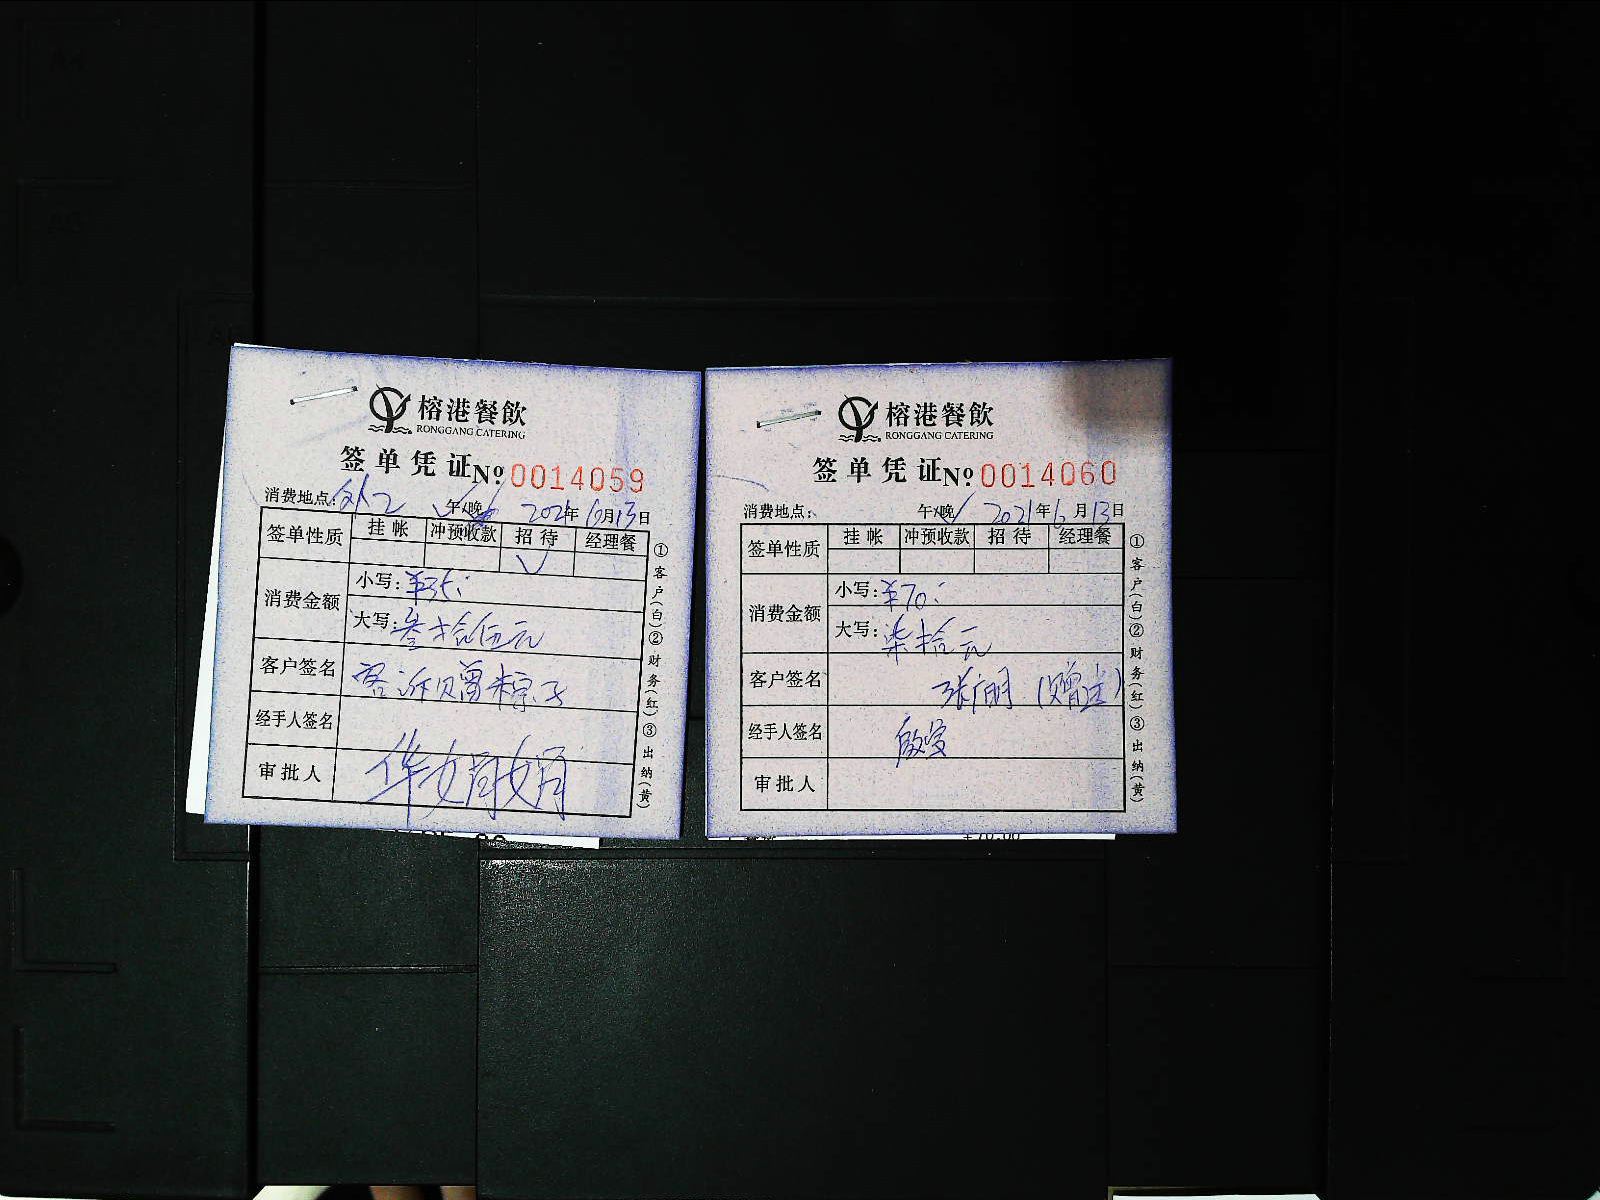 榕港餐飲
RONGGANG CATERING
签单凭证 № 0014059
消费地点: 午/晚 2021年6月13日
签单性质 挂帐 冲预收款 招待 经理餐
√
消费金额 小写: ¥35:
大写: 叁拾伍元
客户签名 客诉赠粽子
经手人签名
审批人
①客户(白)②财务(红)③出纳(黄)
榕港餐飲
RONGGANG CATERING
签单凭证 № 0014060
消费地点: 午/晚√ 2021年6月13日
签单性质 挂帐 冲预收款 招待 经理餐
消费金额 小写: ¥70:
大写: 柒拾元
客户签名 张广明 (赠送)
经手人签名
审批人
①客户(白)②财务(红)③出纳(黄)
¥70.00